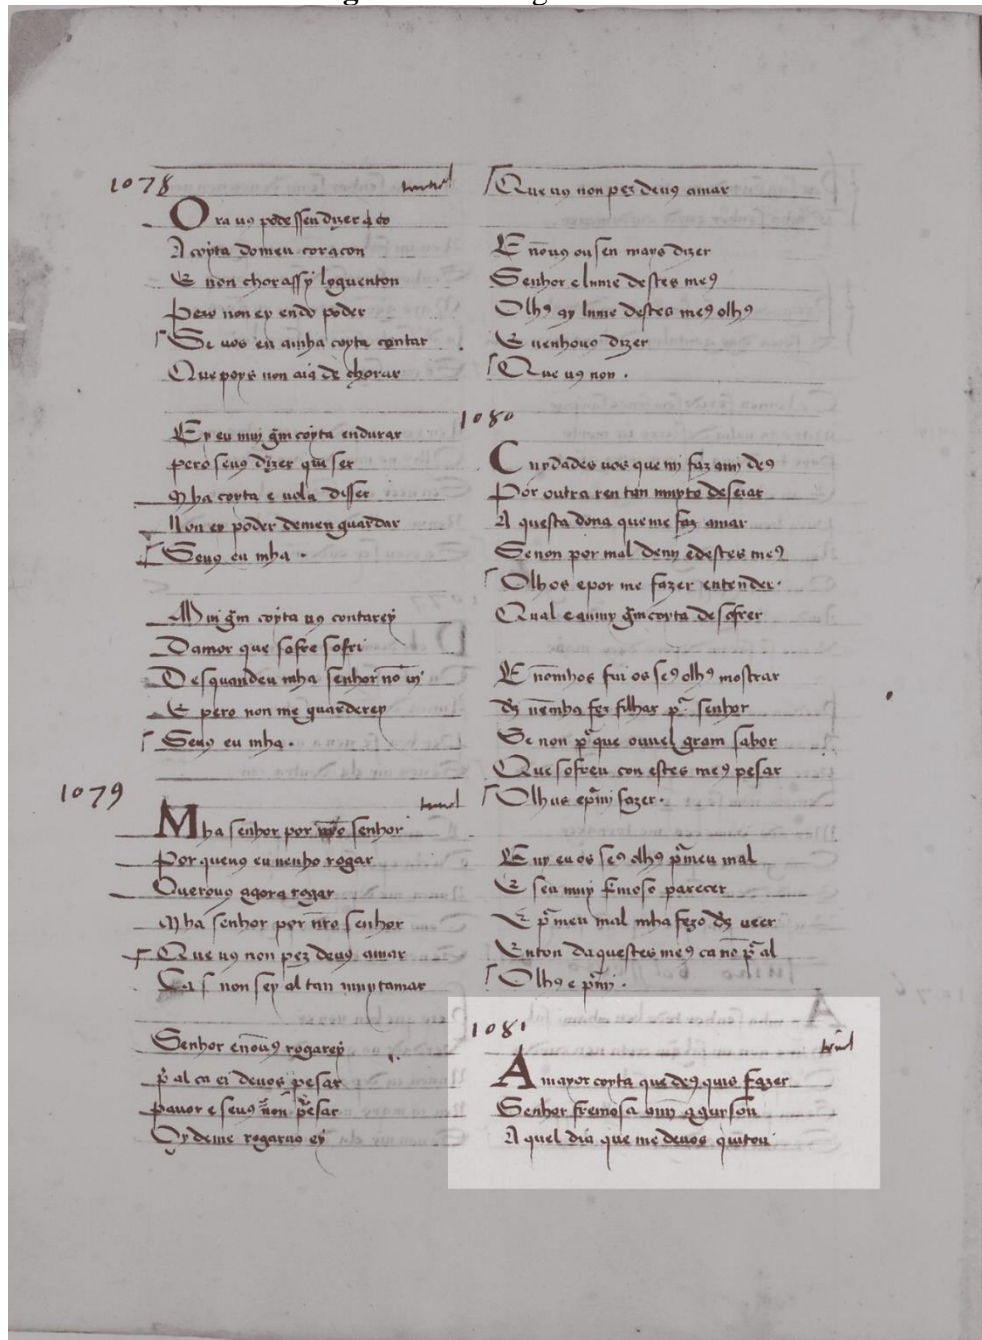 1078
Ora uꝯ podessen dizer q̄ eo
A coyta domeu coraçon
E non chorassy loguenton
Pero non ey endo poder
Se uos eu amha coyta contar
Que poys non aia de chorar
Ey eu mui gr̄m coyta endurar
pero seuꝯ dizer qui ser
Mha coyta e uola disser
Non ey poder demen guardar
Seuꝯ eu mha .
Mui gr̄m coyta uꝯ contarey
Damor que sofre sofri
Desquandeu mha senhor nō ui
E pero non me guarderey
Seuꝯ eu mha .
1079
Mha senhor por senhor
Por queuꝯ eu uenho rogar
Querouꝯ agora rogar
Mha senhor por nr̄o senhor
Que uꝯ non pez deuꝯ amar
Ca non sey al tan muytamar
Senhor enōuꝯ rogarey
p̄ al ca ei deuos pesar
pauor e seuꝯ non pesar
Oy deme rogaruo ey
Que uꝯ non pez deuꝯ amar
E nōuꝯ ousen mays dizer
Senhor e lume destes meꝯ
Olhꝯ ay lume destes meꝯ olhꝯ
E uenhouꝯ dizer
Que uꝯ non .
1080
Cuydades uos que mi faz ami deꝯ
Por outra ren tan muyto deseiar
A questa dona que me faz amar
Se non por mal demy edestes meꝯ
Olhos epor me fazer entender .
Qual e gr̄m coyta de sofrer
E nōmhos fui os seꝯ olhꝯ mostrar
ds̄ nēmha fez filhar pr̄ senhor
Se non pr̄ que ouuel gram sabor
Que sofreu con estes meꝯ pesar
Olhus epr̄mi fazer .
E uy eu os seꝯ olhꝯ pr̄meu mal
E seu muy fr̄moso parecer
E pr̄meu mal mha fezo ds̄ ueer
Enton daquestes meꝯ ca nō pr̄ al
Olhꝯ e pr̄mi .
1081
A mayor coyta que deꝯ quis fazer
Senhor fremosa aguisou
A quel dia que me deuos quitou